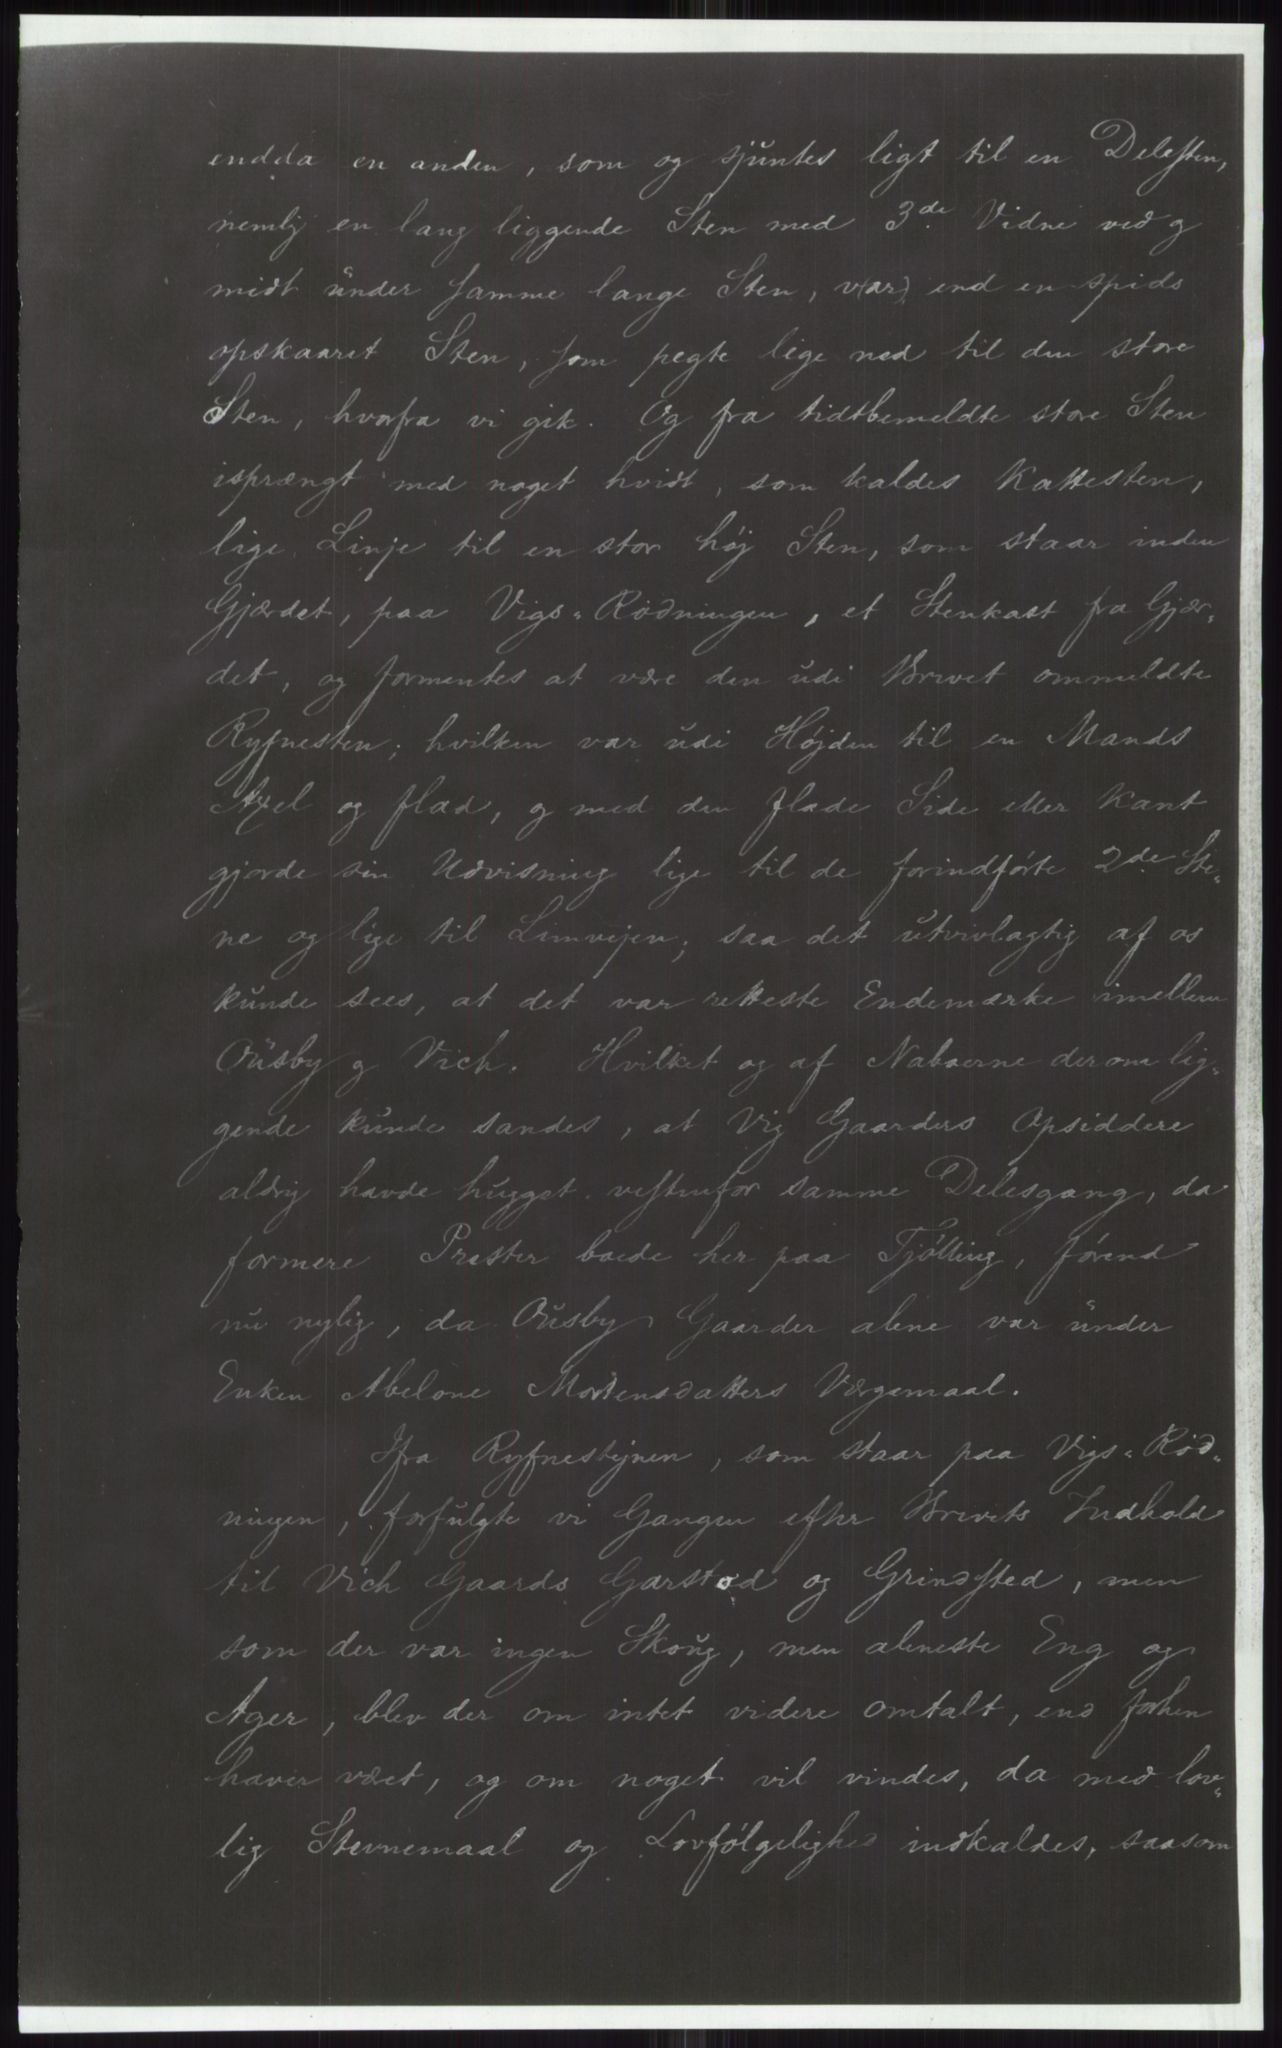 endda en anden, som og sjuntes ligt til en Delesten,
nemlig en lang liggende Sten med 3de Vidne ved og
midt under samme lange Sten, v(ar) end en spids
opskaaret Sten, som pegte lige ned til den store
Sten, hvorfra vi gik. Og fra tidtbemeldte store Sten
isprængt med noget hvidt, som kaldes Kattesten,
lige Linje til en stor høj Sten, som staar inden
Gjærdet, paa Vigs-Rödningen, et Stenkast fra Gjær-
det, og formentes at være den udi Brevet ommeldte
Ryfnesten; hvilken var udi Højden til en Mands
Axel og flad, og med den flade Side eller Kant
gjorde sin Udvisning lige til de forindførte 2de Ste-
ne og lige til Limvejen; saa det utvivlagtig af os
kunde sees, at det var retteste Endemærke imellem
Ousby og Vich. Hvilket og af Naboerne derom lig-
gende kunde sandes, at Vig Gaarders Opsiddere
aldrig havde hugget vestenfor samme Delesgang, da
formere Præster boede her paa Tjølling, førend
nu nylig, da Ousby Gaarder alene var under
Enken Abelone Mortensdatters Værgemaal.
Ifra Ryfnestejnen, som staar paa Vigs-Rød-
ningen, forfulgte vi Gangen efter Brevets Indhold
til Vich Gaards Garstød og Grindsted, men
som der var ingen Skoug, men aleneste Eng og
Ager, blev der om intet videre omtalt, end forhen
haver været, og om noget vil vindes, da med lov-
lig Stevnemaal og Lovfølgelighed indkaldes, saasom